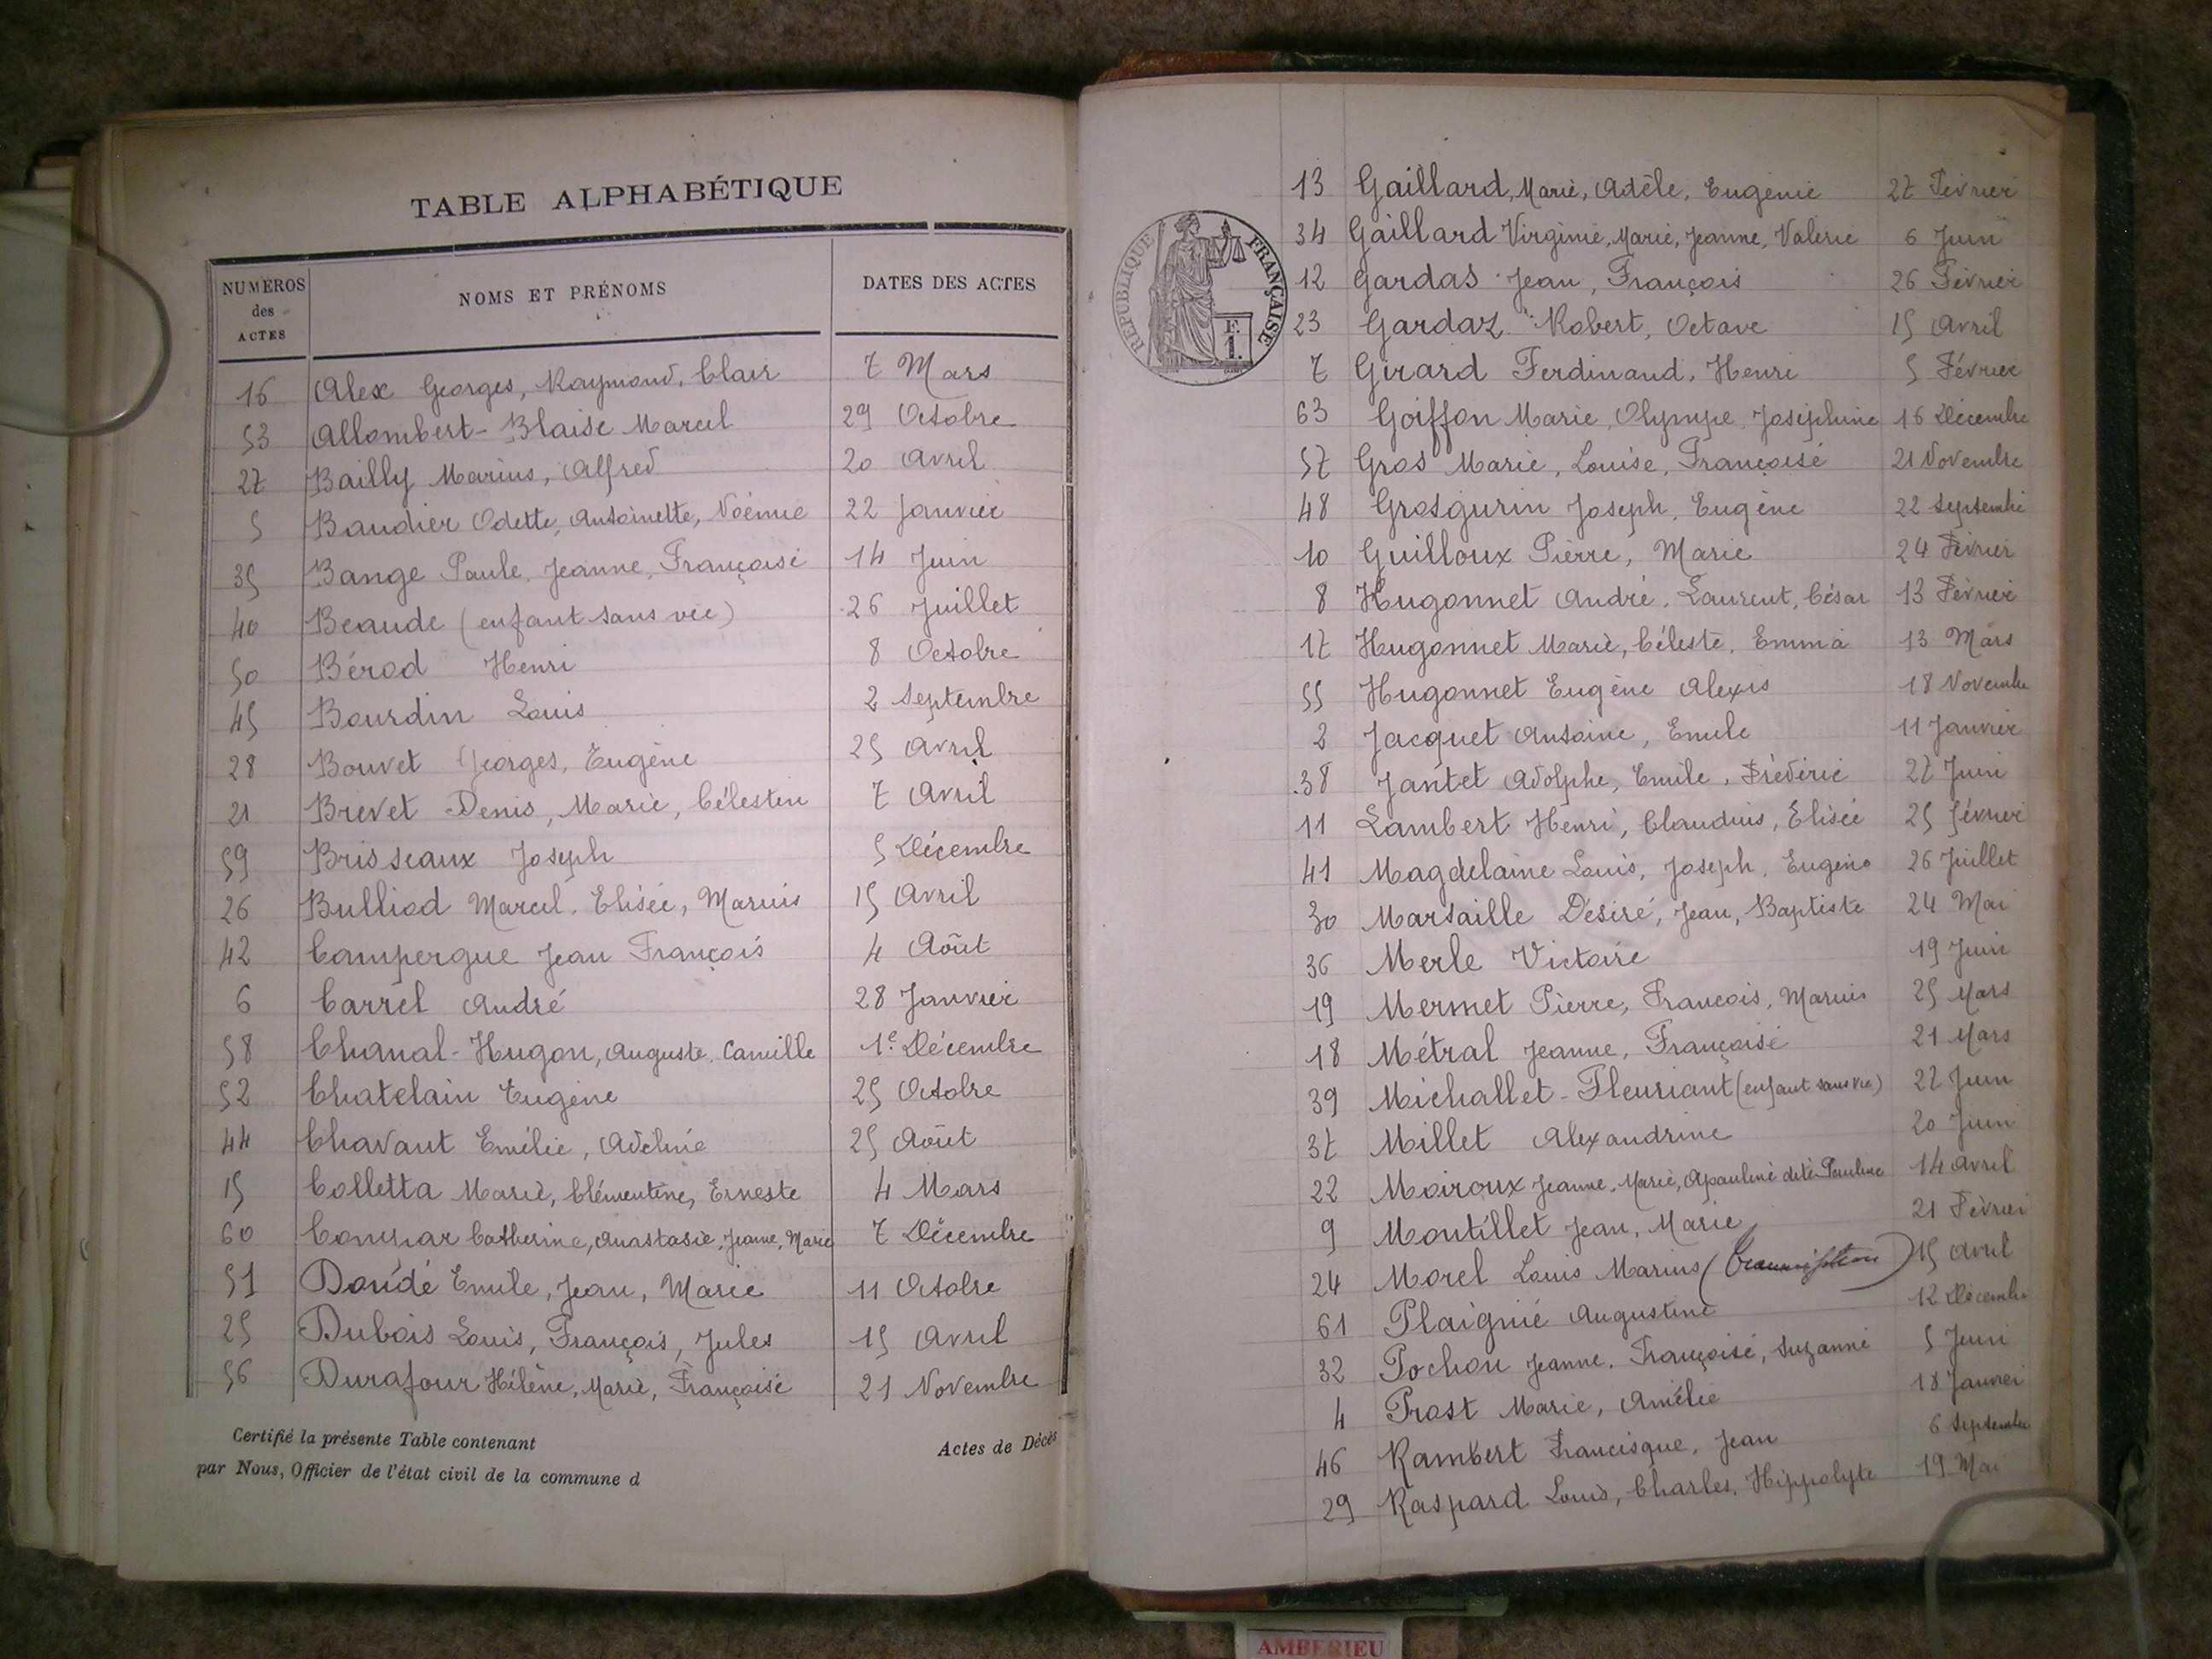 TABLE ALPHABÉTIQUE
NUMEROS des ACTES NOMS ET PRÉNOMS DATES DES ACTES
16 Alex Georges, Raymond, Clair 7 Mars
53 Allombert-Blaise Marcel 29 Octobre
27 Bailly Marius, Alfred 20 Avril
5 Baudier Odette, Antoinette, Noémie 22 Janvier
35 Bange Paule, Jeanne, Françoise 14 Juin
40 Beaude (enfant sans vie) 26 Juillet
50 Bérod Henri 8 Octobre
45 Bourdin Louis 2 Septembre
28 Bouvet Georges, Eugène 25 Avril
21 Brevet Denis, Marie, Célestin 7 Avril
59 Brisseaux Joseph 5 Décembre
26 Bulliod Marcel, Elisée, Marius 15 Avril
42 Campergue Jean François 4 Août
6 Carrel André 28 Janvier
58 Chanal-Hugon, Auguste, Camille 1e Décembre
52 Chatelain Eugène 25 Octobre
44 Chavant Emélie, Adeline 25 Août
15 Colletta Marie, Clémentine, Erneste 4 Mars
60 Catherine, Anastasie, Jeanne, Marie 7 Décembre
51 Daudé Emile, Jean, Marie 11 Octobre
25 Dubois Louis, François, Jules 15 Avril
56 Durafour Hélène, Marie, Françoise 21 Novembre
Certifié la présente Table contenant Actes de Décès
par Nous, Officier de l'état civil de la commune d
RÉPUBLIQUE FRANÇAISE
F. 1.
13 Gaillard, Marie, Adèle, Eugénie 27 Février
34 Gaillard Virginie, Marie, Jeanne, Valérie 6 Juin
12 Gardas Jean, François 26 Février
23 Gardaz Robert, Octave 15 Avril
7 Girard Ferdinand, Henri 5 Février
63 Goiffon Marie, Olympe, Joséphine 16 Décembre
57 Gros Marie, Louise, Françoise 21 Novembre
48 Grosgurin Joseph, Eugène 22 Septembre
10 Guilloux Pierre, Marie 24 Février
8 Hugonnet André, Laurent, César 13 Février
17 Hugonnet Marie, Céleste, Emma 13 Mars
55 Hugonnet Eugène Alexis 18 Novembre
2 Jacquet Antoine, Emile 11 Janvier
38 Jantet Adolphe, Emile, Frédéric 27 Juin
11 Lambert Henri, Claudius, Elisée 25 Février
41 Magdelaine Louis, Joseph, Eugène 26 Juillet
30 Marsaille Désiré, Jean, Baptiste 24 Mai
36 Merle Victoire 19 Juin
19 Mermet Pierre, Francois, Marius 25 Mars
18 Métral Jeanne, Françoise 21 Mars
39 Michallet-Fleuriant (enfant sans vie) 27 Juin
37 Millet Alexandrine 20 Juin
22 Moiroux Jeanne, Marie, Apauline dite Pauline 14 Avril
9 Montillet Jean, Marie 21 Février
24 Morel Louis Marius (Transcription) 15 Avril
61 Plaignié Augustine 12 Décembre
32 Pochon Jeanne, Françoise, Suzanne 5 Juin
4 Prost Marie, Amélie 18 Janvier
46 Rambert Francisque, Jean 6 Septembre
29 Raspard Louis, Charles, Hippolyte 19 Mai
AMBERIEU